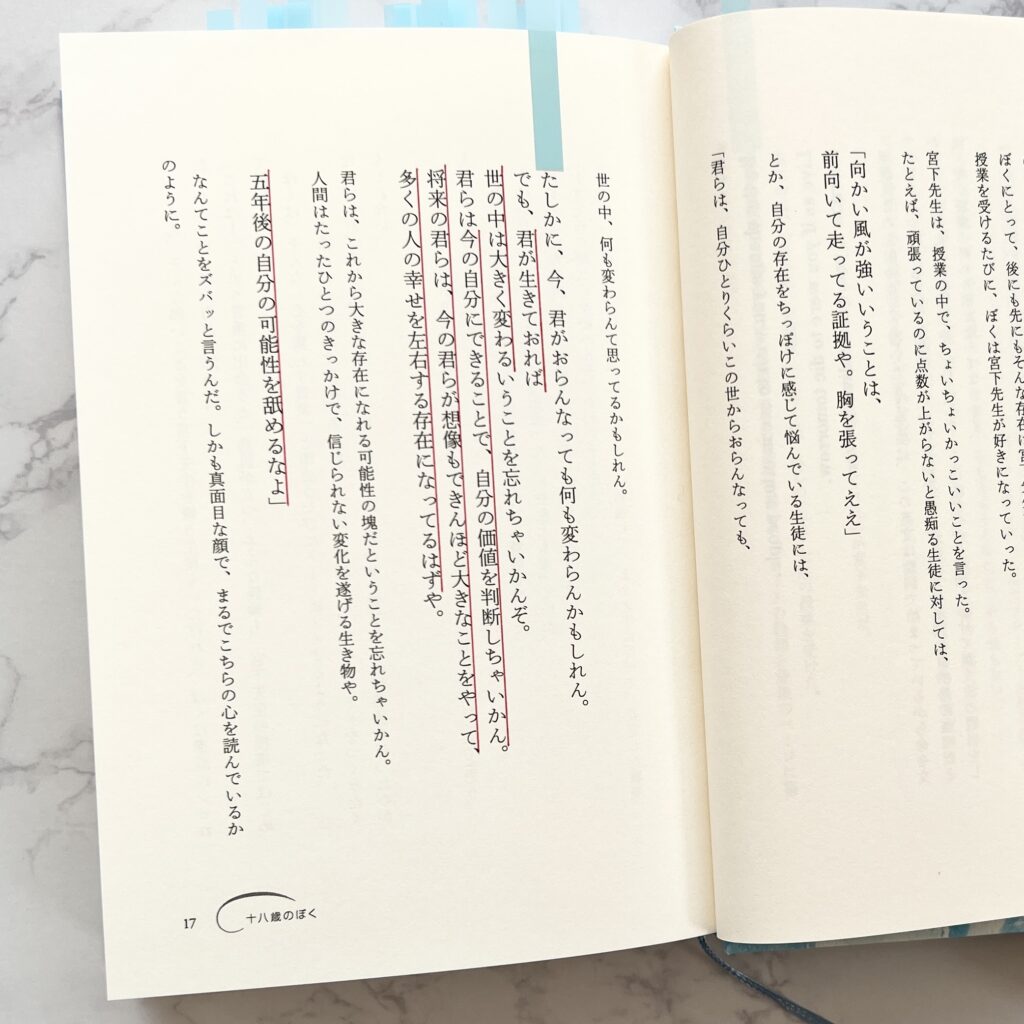 ぼくにとって、後にも先にもそんな存在は宮
授業を受けるたびに、ぼくは宮下先生が好きになっていった。
宮下先生は、授業の中で、ちょいちょいかっこいいことを言った。
たとえば、頑張っているのに点数が上がらないと愚痴る生徒に対しては、
「向かい風が強いいうことは、
前向いて走ってる証拠や。胸を張ってええ」
とか、自分の存在をちっぽけに感じて悩んでいる生徒には、
「君らは、自分ひとりくらいこの世からおらんなっても、
世の中、何も変わらんて思ってるかもしれん。
たしかに、今、君がおらんなっても何も変わらんかもしれん。
でも、君が生きておれば
世の中は大きく変わるいうことを忘れちゃいかんぞ。
君らは今の自分にできることで、自分の価値を判断しちゃいかん。
将来の君らは、今の君らが想像もできんほど大きなことをやって、
多くの人の幸せを左右する存在になってるはずや。
君らは、これから大きな存在になれる可能性の塊だということを忘れちゃいかん。
人間はたったひとつのきっかけで、信じられない変化を遂げる生き物や。
五年後の自分の可能性を舐めるなよ」
なんてことをズバッと言うんだ。しかも真面目な顔で、まるでこちらの心を読んでいるか
のように。
17 十八歳のぼく